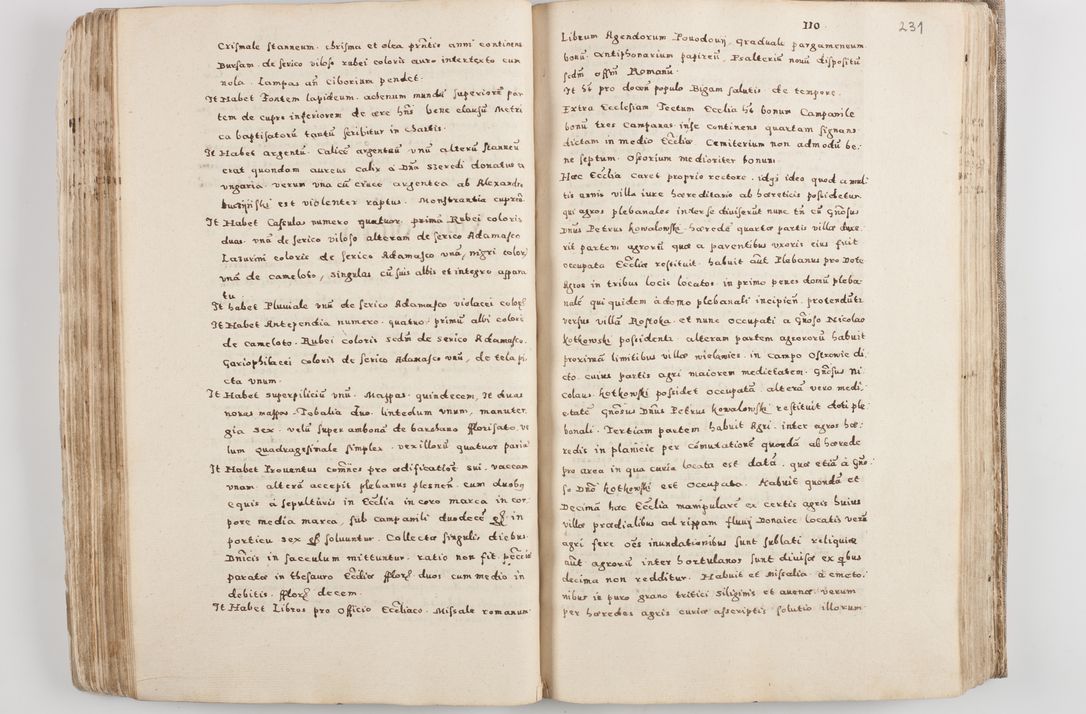 Crismale stanneum. chrisma et olea pr̃ntis anni continens
Bursam. de serico viloso rubei coloris auro intertexto cum
nola. Lampas añ Ciborium pendet.
It Habet Fontem lapideum. achenum mundũ superiorẽ par
tem de cupro inferiorem de ære hñs bene clausũ Metri
ca baptisatorũ tantũ scribitur in chartis.
It Habet argentũ. Calicẽ argenteũ vnũ alterũ stanneũ
erat quondam aureus calix a Dño Szeredi donatus
vngaria. verum vna cũ cruce argentea ab Alexandro
est violenter raptus. Monstrantia cuprea
It Habet Casulas numero quatuor. prima Rubei coloris
duas. vnã de serico viloso alteram de serico Adamasco
Lazurini coloris de serico Adamasco vnã, nigri color
vnã de cameloto, singulas cũ suis albis et integro appara
tu
It habet Pluuiale vnũ de serico Adamasco violacei color
It Habet Antependia numero. quatuor. primũ albi coloris
de cameloto. Rubei coloris sedm de serico Adamasco.
Gariophilacei coloris de serico Adamasco vnũ, de tela pi
cta vnum.
It Habet superpiliciũ vnũ. Mappas. quindecem, It duas
nouas mappas. Tobalia duo. linteolum vnum, manuter
gia sex. velũ super ambona de barchano fflorisato, ve
lum quadragesimale simplex. vexillorũ quatuor paria
It Habet Prouentus com̃nes pro ædificatioẽ sui. vaccam
vnam. alterã accepit plebanus plesnen. cum duobq
equis a sepulturis in Ecclia in coro marca in cor,
pore media marca, sub campanili duodecẽ in
porticu sex soluuntur. Collecta singulis diebus
Dnicis in sacculum mittuntur. ratio non fit. pecũia
parata in thesauro Eccliæ fflor duos cum medio in
debitis. fflor decem.
It Habet Libros pro officio Eccliaco. Missale romanum

110 231
Librum Agendorum Pouodouij, Graduale pargameneum
bonũ Antiphonarium papireũ, Psalteriũ nouũ dispositũ
sedm offm Romanũ.
It hĩ pro docẽn populo Bigam salutis de tempore.
Extra Ecclesiam Tectum Ecclia hĩ bonum Campanile
bonũ tres Campanas in se continens quartam signans
dictam in medio Eccliæ Cemiterium non admodũ be:
ne septum. Ossorium mediocriter bonum.
Hæc Ecclia caret proprio rectore. idqs ideo quod a mul:
tis annis villa iure hæreditario ab hæreticis possidetur
qui agros plebanales inter se diuiserũt nunc tñ cũ Gñosus
Dnũs Petrus Kowalowski hærede quartæ partis villæ duxe
rit partem agrorũ quæ a parentibus vxoris eius fuit
occupata Eccliæ restituit. habuit aũt Plebanus pro Dote
Agros in tribus locis locatos. in primo penes domũ pleba:
nalẽ qui quidem à domo plebanali incipieñ. protendũt
versus villã Rostoka. et nunc occupati a Gñoso Nicolao
Kotkowski possidenti. alteram partem agrorũ habuit
proximã limitibus villæ in campo Ostrowie di:
cto. cuius partis agri maiorem medietatem. Gñosus Ni
colaus Kotkowski possidet occupatã. alterã vero medi:
etatẽ Gñosus Dñus Petrus Kowalowski restituit doti ple
banali. Tertiam partem habuit Agri. inter agros hæ:
redis in planicie per cõmutationẽ quondã ab hærede
pro area in qua curia locata est datã. quæ etiã à Gño:
so Dñõ Kotkowski est occupata. Habuit quondã et
Decimã hæc Ecclia manipularẽ ex certis agris huius
villæ prædialibus ad rippam fluuij Donaiec locatis verũ
agri fere oẽs inundationibus sunt sublati reliquiæ
aũt agrorũ inter hortulanos sunt diuisæ ex qbus
decima non redditur. Habuit et Missalia à cmeto:
nibus in puro grano tritici siliginis et auenæ verum
per hæredes agris curiæ asscriptis solutio illorum